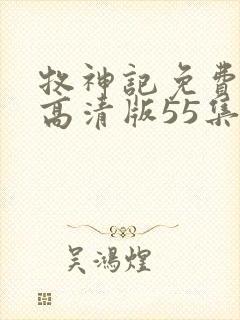 牧神記免費
高清版55集
吴鴻煌